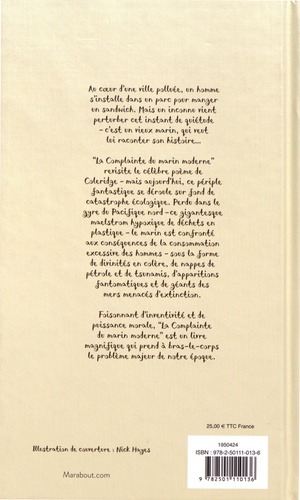 Au cœur d'une ville polluée, un homme
s'installe dans un parc pour manger
un sandwich. Mais un inconnu vient
perturber cet instant de quiétude
– c'est un vieux marin, qui veut
lui raconter son histoire...
"La Complainte du marin moderne"
revisite le célèbre poème de
Coleridge – mais aujourd'hui, ce périple
fantastique se déroule sur fond de
catastrophe écologique. Perdu dans le
gyre du Pacifique nord – ce gigantesque
maelstrom hypoxique de déchets en
plastique – le marin est confronté
aux conséquences de la consommation
excessive des hommes – sous la forme
de divinités en colère, de nappes de
pétrole et de tsunamis, d'apparitions
fantomatiques et de géants des
mers menacés d'extinction.
Foisonnant d'inventivité et de
puissance morale, "La Complainte
du marin moderne" est un livre
magnifique qui prend à bras-le-corps
le problème majeur de notre époque.
25,00 € TTC France
1950424
ISBN : 978-2-50111-013-6
9 782501 110136
Illustration de couverture : Nick Hayes
Marabout.com